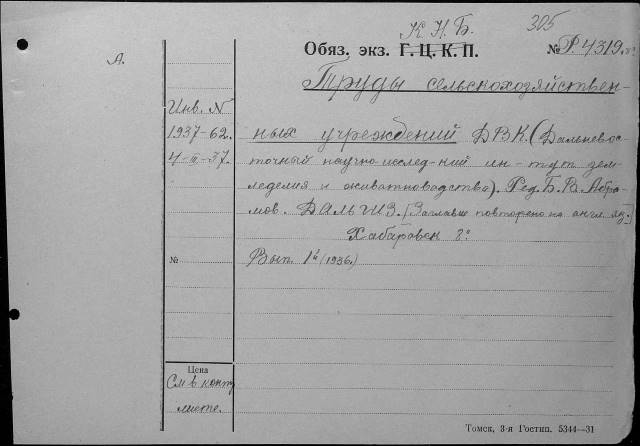 К. Н. Б. 305
Обяз. экз. Г. Ц. К. П. № Р.4319.
А.
Труды сельскохозяйствен-
Инв. N
1937-62.
4-III-37.
ных учреждений ДВК. (Дальневос-
точный научно-исслед-ний ин-тут зем-
леделия и животноводства). Ред. Б. В. Абра-
мов. ДАЛЬГИЗ. [Заглавие повторено на англ. яз.]
Хабаровск 8°
№ Вып. 1й (1936.)
Цена
См в конт
листе.
Томск, 3-я Гостип. 5344—31